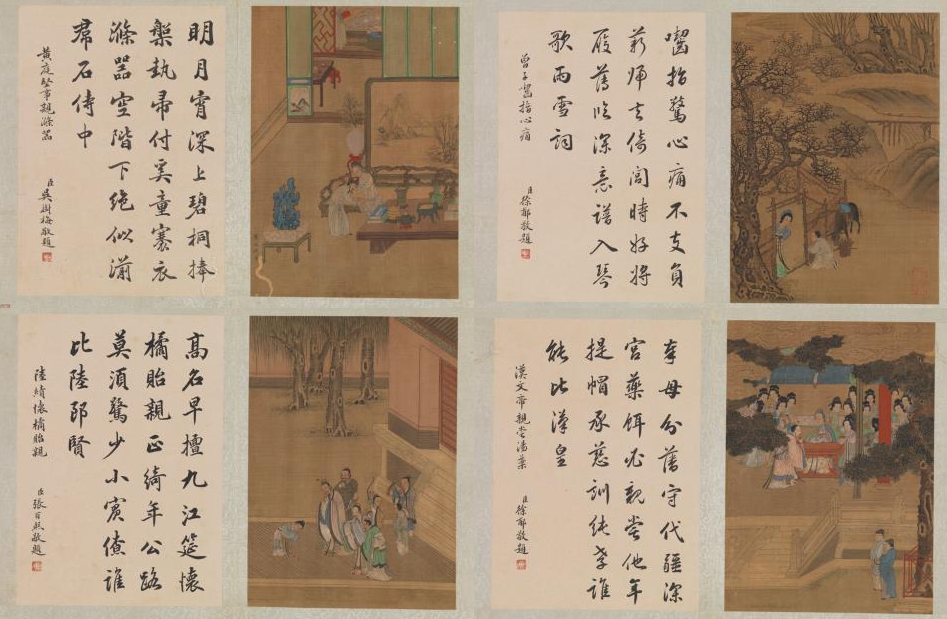 明月宵深上碧桐捧
槃執帚付奚童褰衣
滌器空階下絕似湔
帬石侍中
黃庭堅事親滌器
臣吳樹梅敬題
囓指驚心痛不支負
薪歸去倚閭時好將
履薄臨深意譜入琴
歌雨雪詞
曾子齧指心痛
臣徐郙敬題
高名早擅九江筵懷
橘貽親正綺年公路
莫須驚少小賓僚誰
比陸郎賢
陸績懷橘貽親
臣張百熙敬題
奉母分藩守代疆深
宮藥餌必親嘗他年
提帽承慈訓純孝誰
能比漢皇
漢文帝親嘗湯藥
臣徐郙敬題